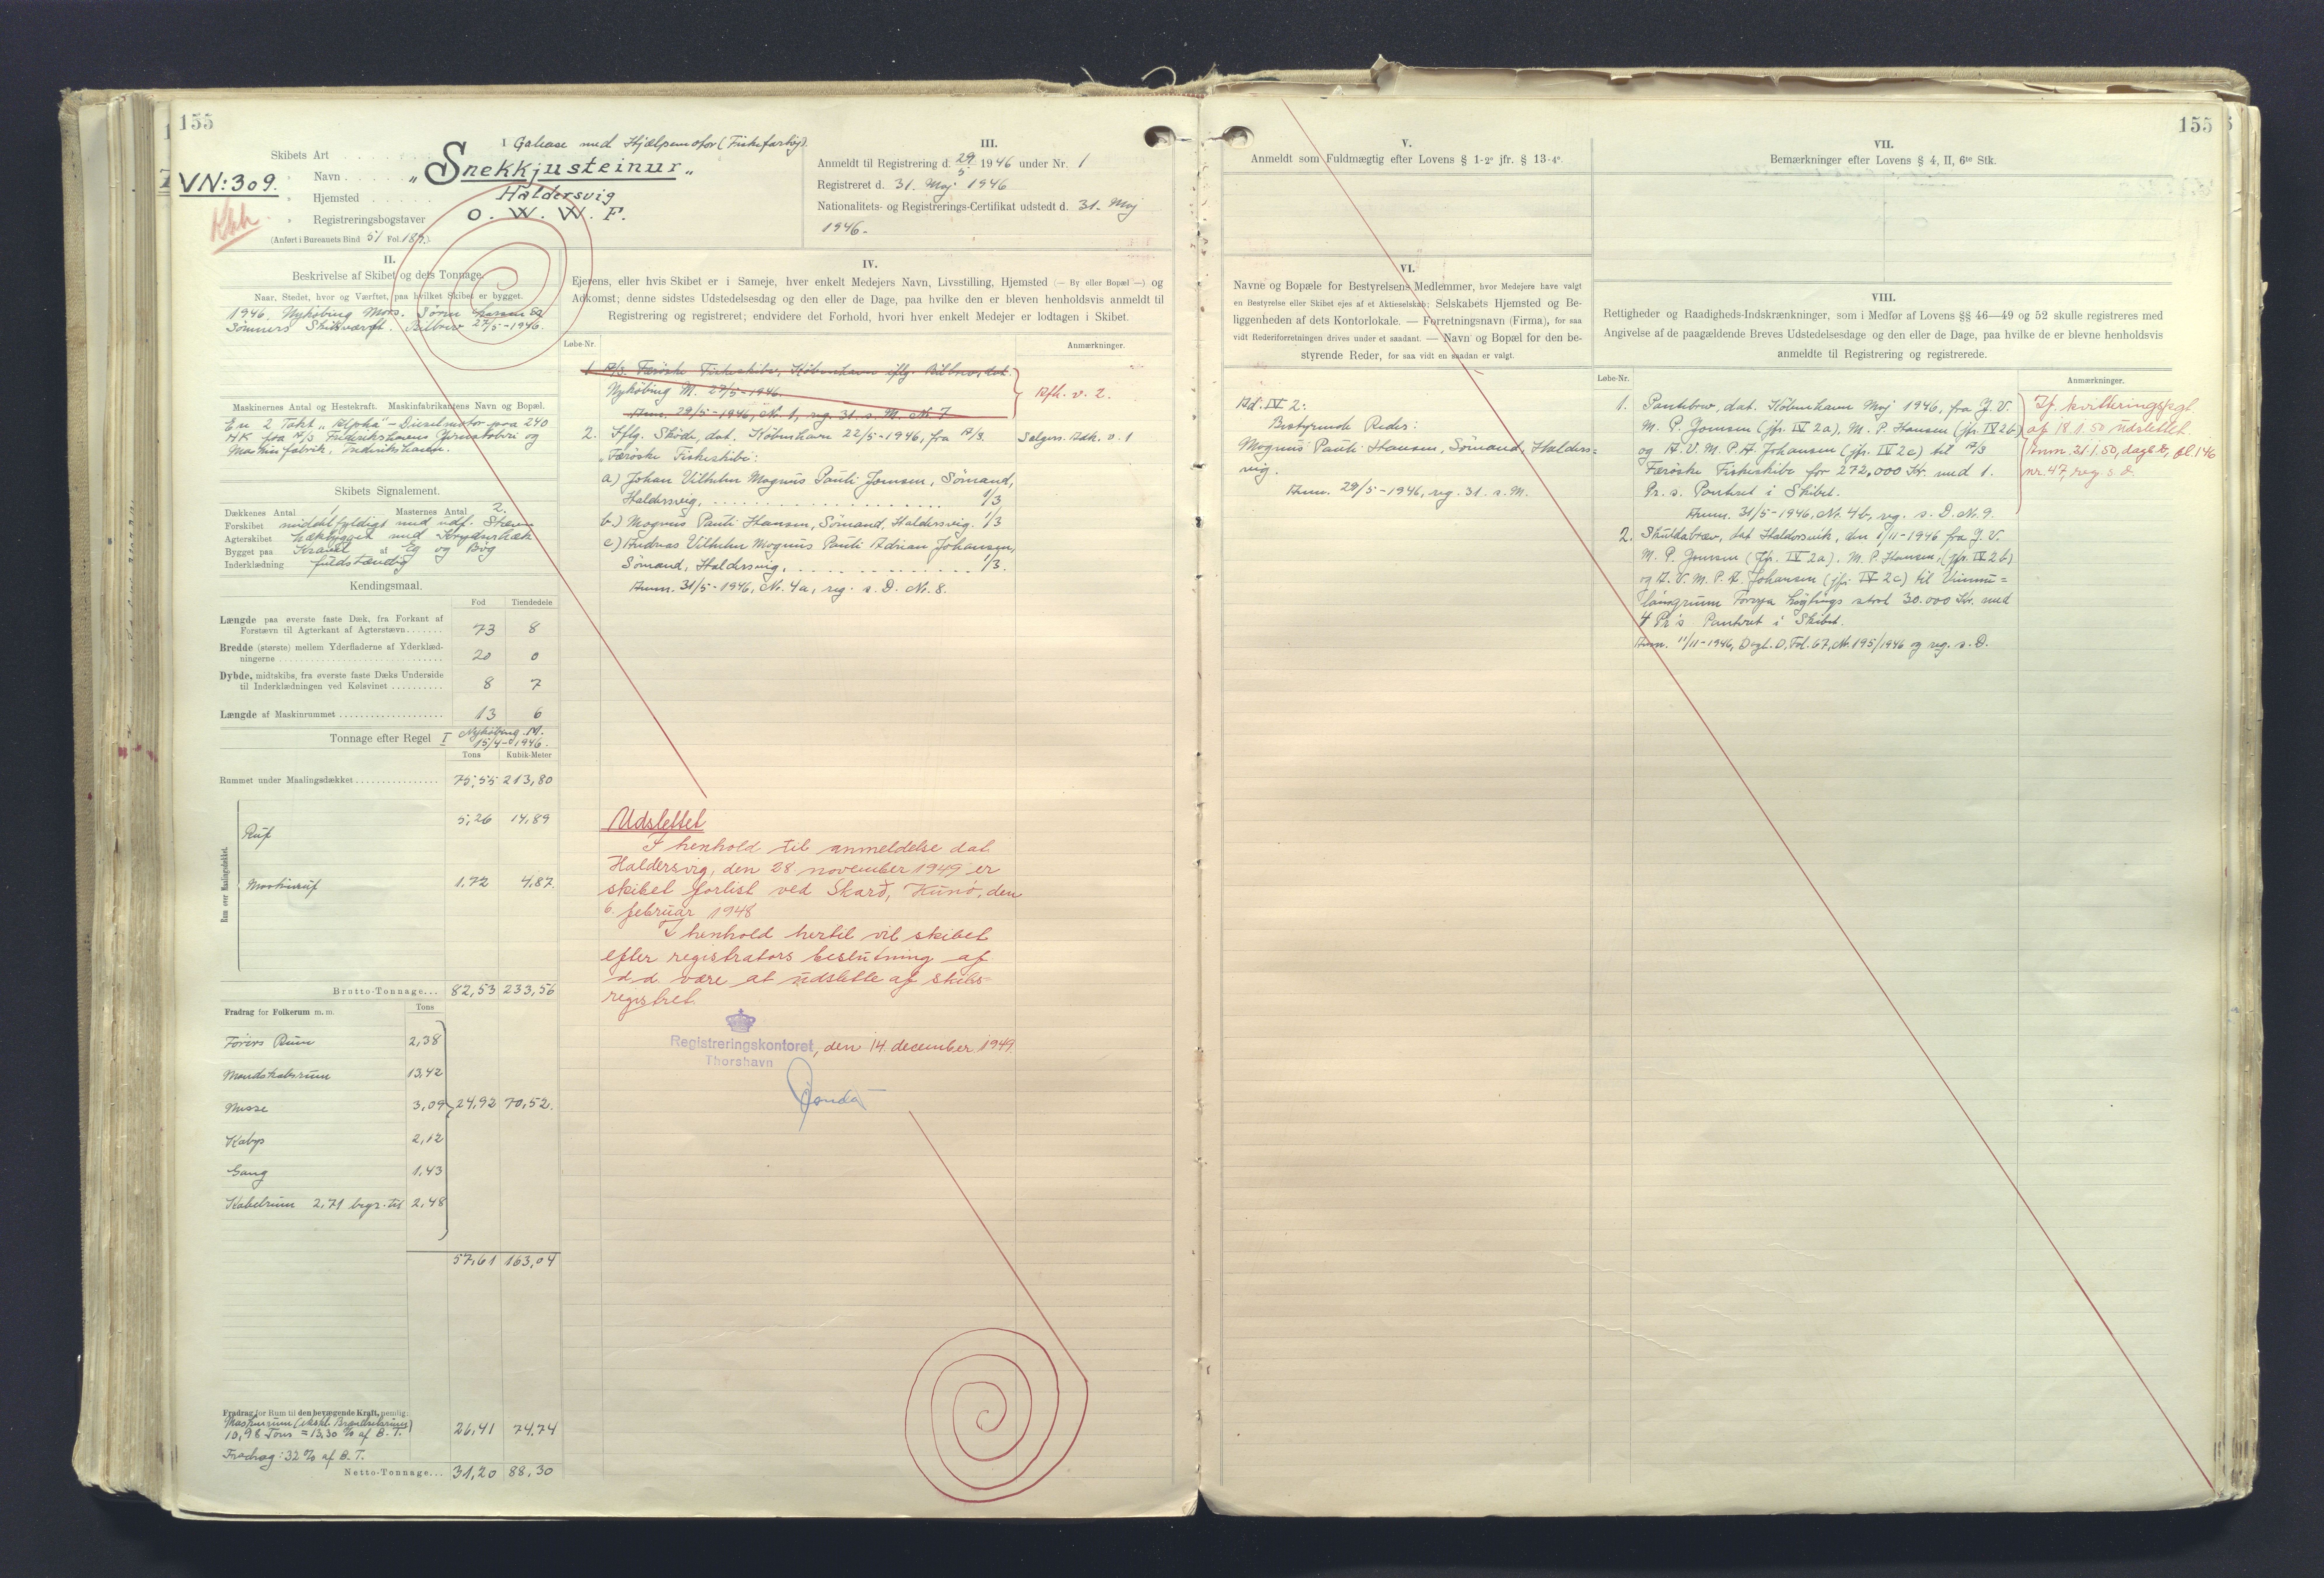 155
I
Skibets Art . . . Galease med Hjælpemotor (Fiskefartøj).
VN: 309.
" Navn . . . . . „Snekkjusteinur„
Kbh.
" Hjemsted . . . . . . Haldersvig
" Registreringsbogstaver O. W. W. F.
(Anført i Bureauets Bind 51 Fol. 189.)
III.
Anmeldt til Registrering d. 29/5 1946 under Nr. 1
Registreret d. 31. Maj 1946
Nationalitets- og Registrerings-Certifikat udstedt d. 31. Maj
1946.
II.
Beskrivelse af Skibet og dets Tonnage.
Naar, Stedet, hvor og Værftet, paa hvilket Skibet er bygget.
1946. Nykøbing Mors. Sören
Sömmers Skibsværft. Bilbrev 27/5-1946.
Maskinernes Antal og Hestekraft. Maskinfabrikantens Navn og Bopæl.
En 2 Takt „Alpha"-Dieselmotor paa 240
HK fra A/S Frederikshavns Jernstøberi og
Maskinfabrik, Frederikshavn.
Skibets Signalement.
Dækkenes Antal 1 Masternes Antal 2.
Forskibet middelfyldigt med udf. Stævn
Agterskibet hækbygget med Krydserhæk
Bygget paa Kravel af Eg og Bøg
Inderklædning fuldstændig
Kendingsmaal.
Fod Tiendedele
Længde paa øverste faste Dæk, fra Forkant af
Forstævn til Agterkant af Agterstævn . . . . . . . 73 8
Bredde (største) mellem Yderfladerne af Yderklæd-
ningerne . . . . . . 20 0
Dybde, midtskibs, fra øverste faste Dæks Underside
til Inderklædningen ved Kølsvinet . . . . . . . . . . 8 7
Længde af Maskinrummet . . . . . . 13 6
Tonnage efter Regel I Nykøbing M. 15/4-1946.
Tons Kubik-Meter
Rummet under Maalingsdækket . . . . . . 75,55 213,80
Rum over Maalingsdækket.
Ruf 5,26 14,89
Maskinruf 1,72 4,87
Brutto-Tonnage . . . 82,53 233,56
Fradrag for Folkerum m. m. Tons
Førers Rum 2,38
Mandskabsrum 13,42
Messe 3,09 24,92 70,52.
Kabys 2,12
Gang 1,43
Kabelrum 2,71 begr. til 2,48
57,61 163,04
Fradrag for Rum til den bevægende Kraft, nemlig:
Maskinrum (ekskl. Brændselsrum)
10,98 Tons = 13,30 % af B. T. 26,41 74,74
Fradrag: 32 % af B. T.
Netto-Tonnage . . . 31,20 88,30
IV.
Ejerens, eller hvis Skibet er i Sameje, hver enkelt Medejers Navn, Livsstilling, Hjemsted (— By eller Bopæl —) og
Adkomst; denne sidstes Udstedelsesdag og den eller de Dage, paa hvilke den er bleven henholdsvis anmeldt til
Registrering og registreret; endvidere det Forhold, hvori hver enkelt Medejer er lodtagen i Skibet.
Løbe-Nr. Anmærkninger.
1 A/S. Færøske Fiskeskibe, København iflg. Bilbrev, dat.
Nykøbing M. 27/5-1946.
Anm. 29/5-1946, Nr. 1, reg. 31. s. M. Nr. 7
Afh. v. 2.
2. Iflg. Skøde, dat. København 22/5-1946, fra A/S. Salgsv. Adk. v. 1
Færøske Fiskeskibe:
a) Johan Vilhelm Magnus Pauli Joensen, Sømand,
Haldersvig, . . . . . . 1/3
b) Magnus Pauli Hansen, Sømand, Haldersvig. 1/3
c) Andreas Vilhelm Magnus Pauli Adrian Johansen,
Sømand, Haldersvig, . . . . . . 1/3.
Anm. 31/5-1946, Nr. 4a, reg. s. D. Nr. 8.
Udslettet
I henhold til anmeldelse dat.
Haldersvig, den 28. november 1949 er
skibet forlist ved Skarð, Kunø, den
6. februar 1948
I henhold hertil vil skibet
efter registrators beslutning af
d.d. være at udslette af skibs-
registret.
Registreringskontoret, den 14. december 1949
Thorshavn
155
V.
Anmeldt som Fuldmægtig efter Lovens § 1-2° jfr. § 13-4°.
VI.
Navne og Bopæle for Bestyrelsens Medlemmer, hvor Medejere have valgt
en Bestyrelse eller Skibet ejes af et Aktieselskab; Selskabets Hjemsted og Be-
liggenheden af dets Kontorlokale. — Forretningsnavn (Firma), for saa
vidt Rederiforretningen drives under et saadant. — Navn og Bopæl for den be-
styrende Reder, for saa vidt en saadan er valgt.
Ad. IV 2:
Bestyrende Reder:
Magnus Pauli Hansen, Sømand, Halders=
vig.
Anm. 29/5-1946, reg. 31. s. M.
VII.
Bemærkninger efter Lovens § 4, II, 6te Stk.
VIII.
Rettigheder og Raadigheds-Indskrænkninger, som i Medfør af Lovens §§ 46—49 og 52 skulle registreres med
Angivelse af de paagældende Breves Udstedelsesdage og den eller de Dage, paa hvilke de er blevne henholdsvis
anmeldte til Registrering og registrerede.
Løbe-Nr. Anmærkninger.
1. Pantebrev, dat. København Maj 1946, fra J. V.
M. P. Joensen (jfr. IV 2a), M. P. Hansen (jfr. IV 2b)
og A. V. M. P. A. Johansen (jfr. IV 2c) til A/S
Færøske Fiskeskibe for 272,000 Kr. med 1.
Pr. s. Panteret i Skibet.
Anm. 31/5-1946, Nr. 4b, reg. s. D. Nr. 9.
If. kvitteringspgt.
af 18.1.50 udslettet
Anm. 21.1.50, dagb. D, fol. 146
nr. 47, reg. s. d.
2. Skuldabræv, dat. Haldersvik, den 1/11-1946 fra J. V.
M. P. Joensen (jfr. IV 2a), M. P. Hansen, (jfr. IV 2b)
og A. V. M. P. A. Johansen (jfr. IV 2c) til Vinnu=
lánsgrunn Føroya Løgtings stort 30.000 Kr. med
4 Pr's Panteret i Skibet.
Anm. 11/11-1946, Dagb. D, Fol. 67, Nr. 195/1946 og reg. s. D.